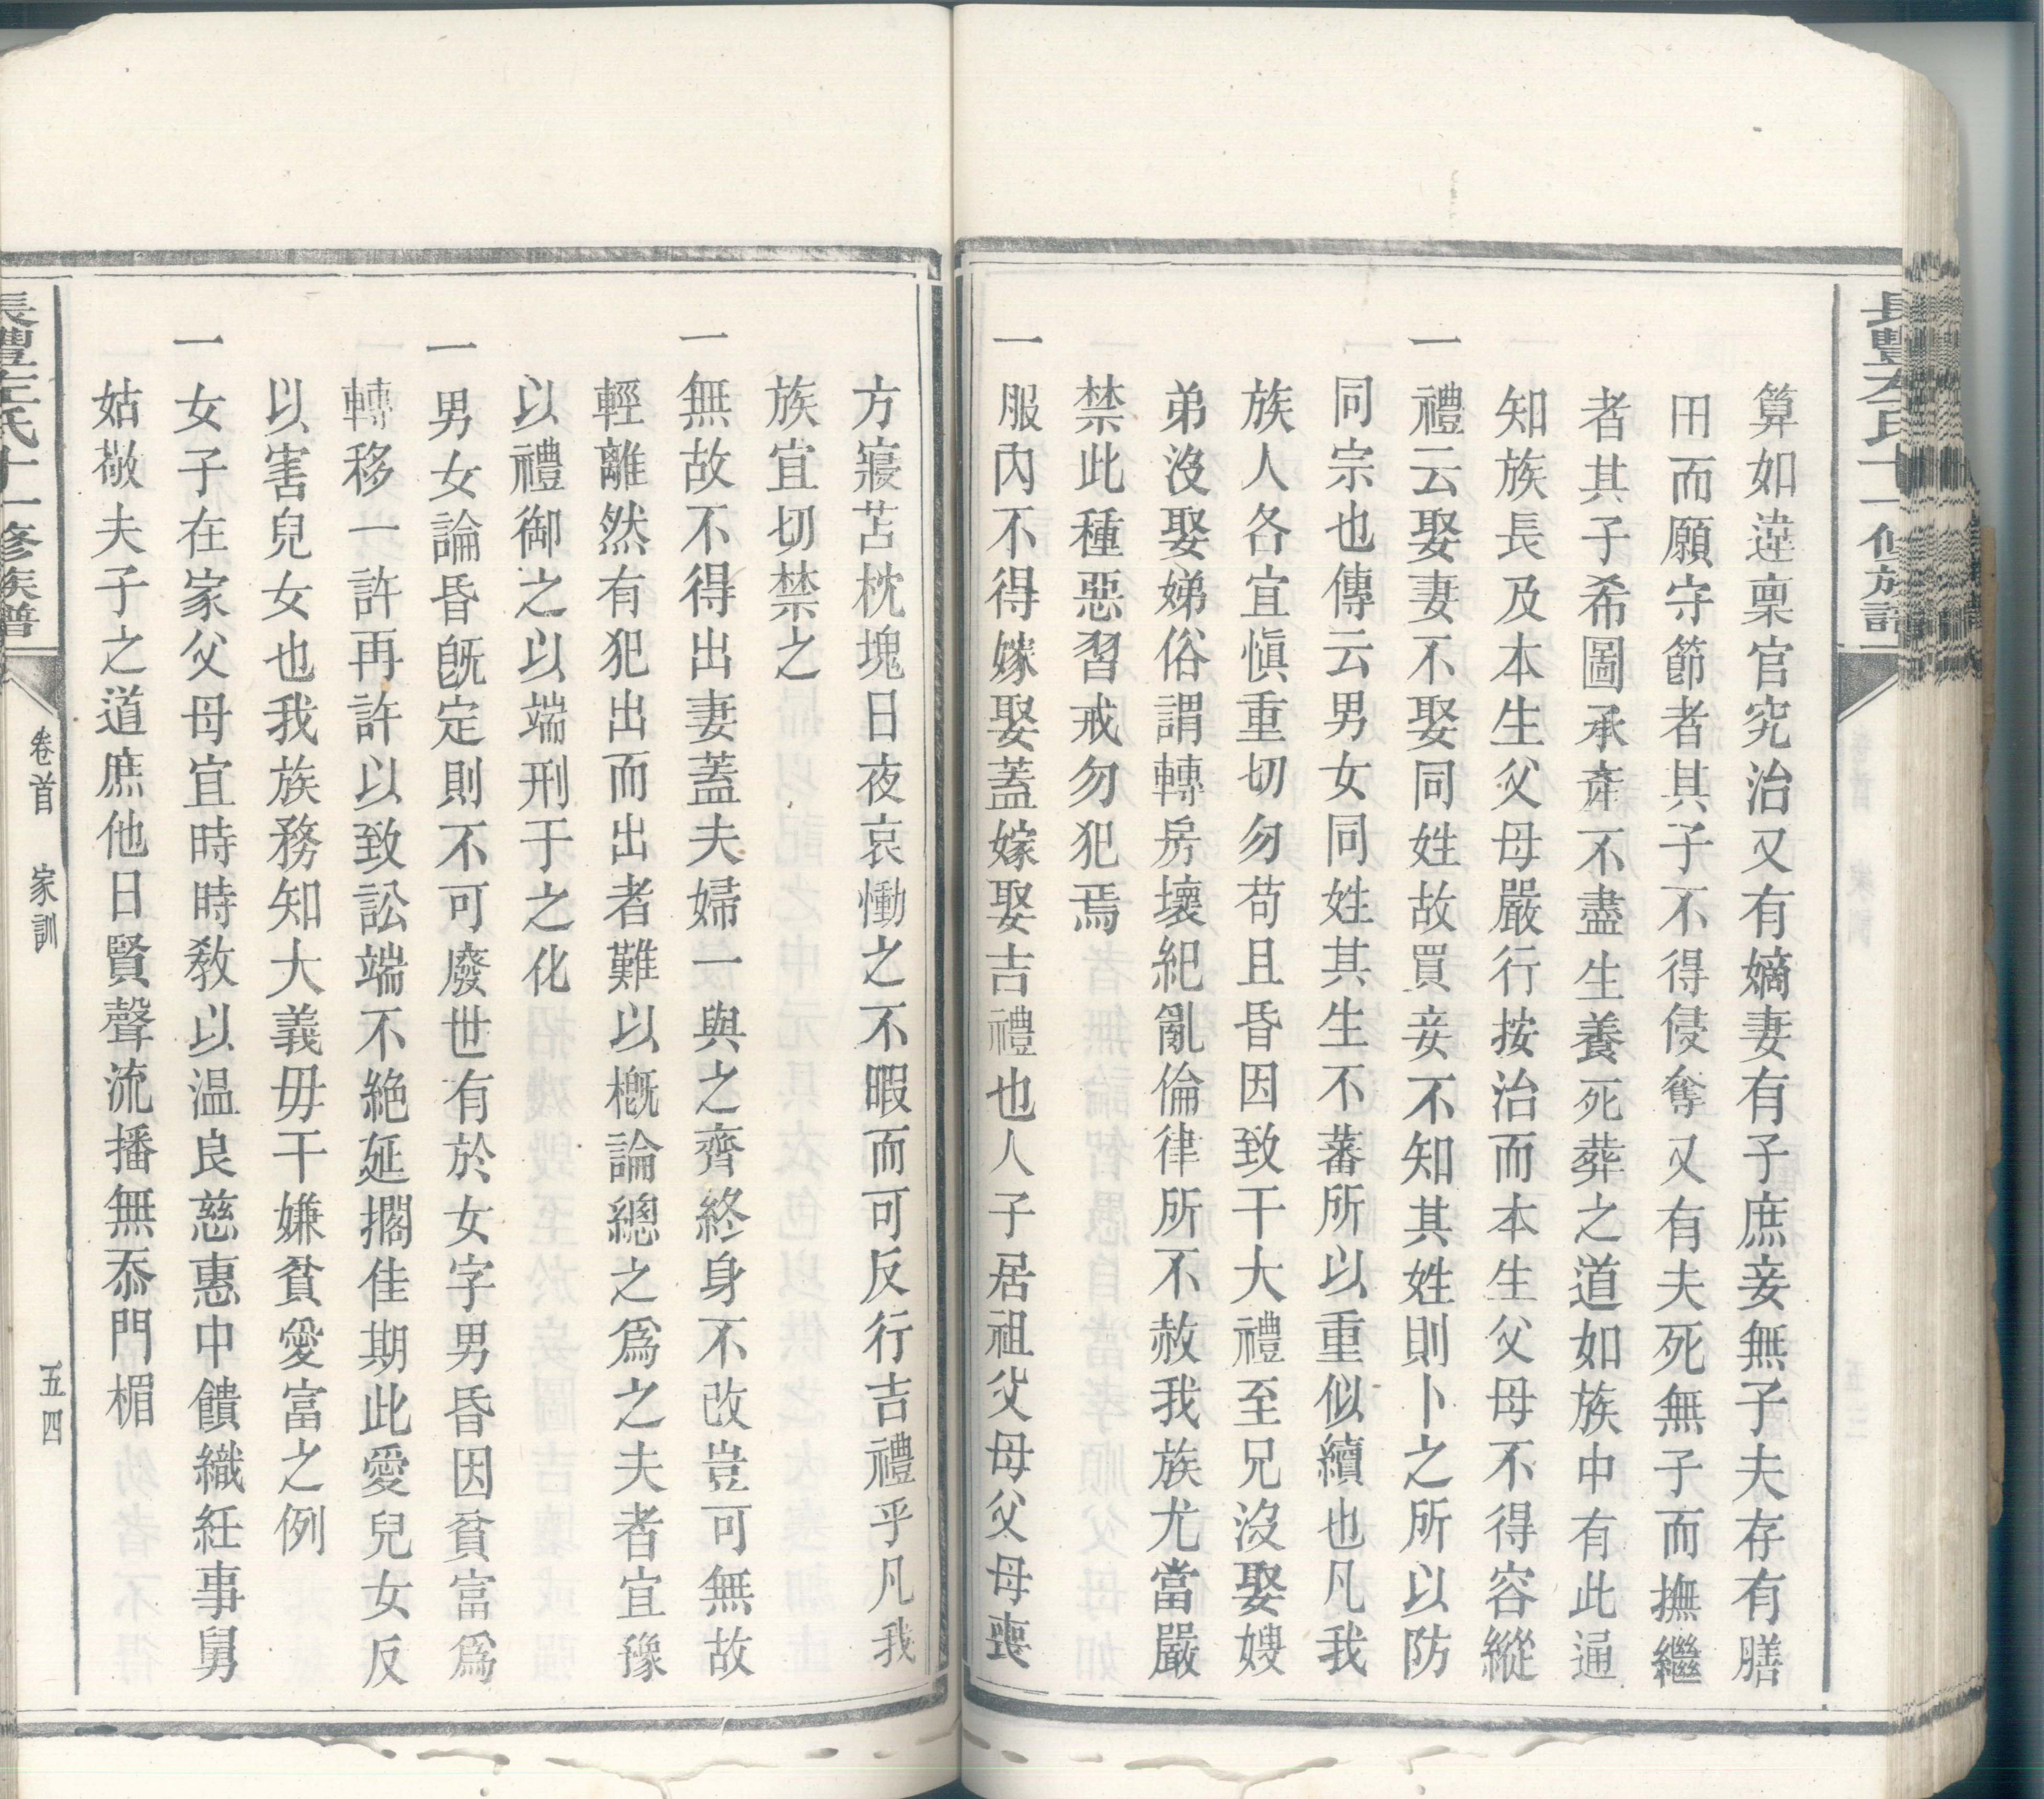 算如違稟官究治又有嫡妻有子庶妾無子夫存有膳
田而願守節者其子不得侵奪又有夫死無子而撫繼
者其子希圖承產不盡生養死葬之道如族中有此通
知族長及本生父母嚴行按治而本生父母不得容縱
一禮云娶妻不娶同姓故買妾不知其姓則卜之所以防
同宗也傳云男女同姓其生不蕃所以重似續也凡我
族人各宜慎重切勿苟且昏因致干大禮至兄沒娶嫂
弟沒娶娣俗謂轉房壞紀亂倫律所不赦我族尤當嚴
禁此種惡習戒勿犯焉
一服內不得嫁娶蓋嫁娶吉禮也人子居祖父母父母喪
方寢苫枕塊日夜哀慟之不暇而可反行吉禮乎凡我
族宜切禁之
一無故不得出妻蓋夫婦一與之齊終身不改豈可無故
輕離然有犯出而出者難以槪論總之爲之夫者宜豫
以禮御之以端刑于之化
一男女論昏旣定則不可廢世有於女字男昏因貧富爲
轉移一許再許以致訟端不絶延擱佳期此愛兒女反
以害兒女也我族務知大義毋干嫌貧愛富之例
一女子在家父母宜時時敎以温良慈惠中饋織紝事舅
姑敬夫子之道庶他日賢聲流播無忝門楣
卷首 家訓
五四